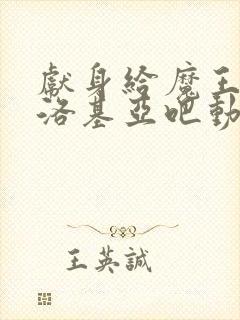 獻身給魔王
洛基亞吧動
王英誠